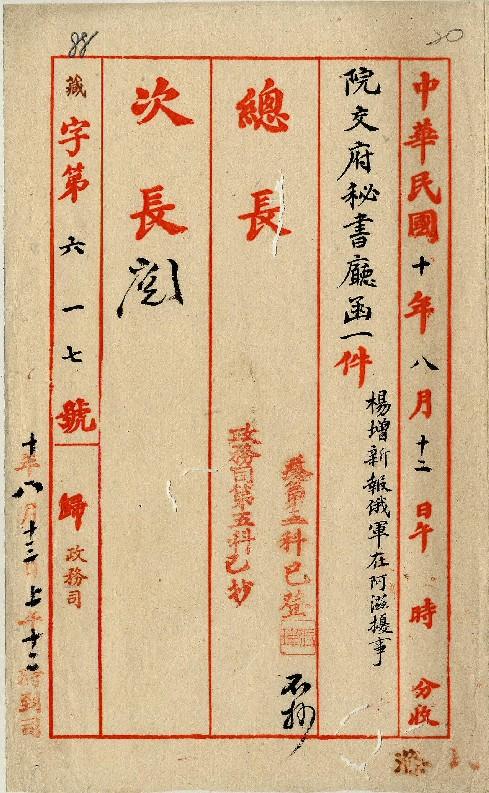 20
中華民國十年八月十二日午 時 分收
院交府秘書廳函一件
楊增新報俄軍在阿滋擾事
總長
第五科已登
不抄
政務司第五科已抄
次長
閱
88
藏字第六一七號
歸政務司
十年八月十三日上午十二時到司